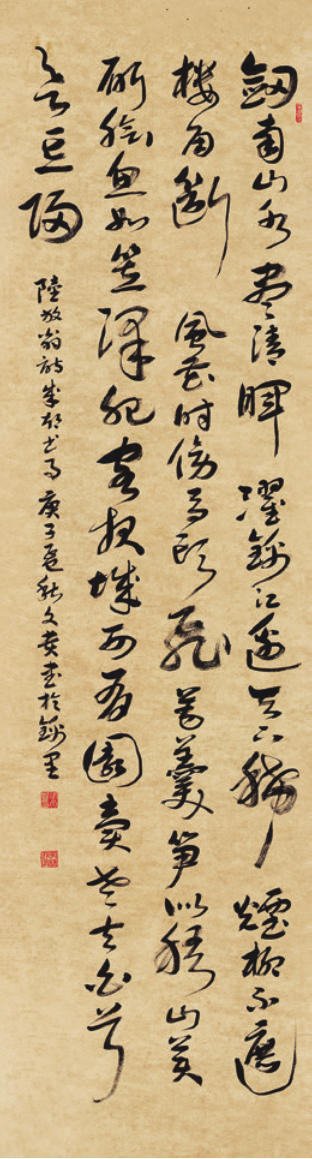 劒南山水盡清暉濯錦江邊天下稀煙柳不遮
樓角斷風花時傍馬頭飛芼羹筍似稽山美
斫膾魚如笠澤肥客報城西有園賣老夫白首
欲忘歸
陸放翁詩成都書事庚子秋文書於錦里